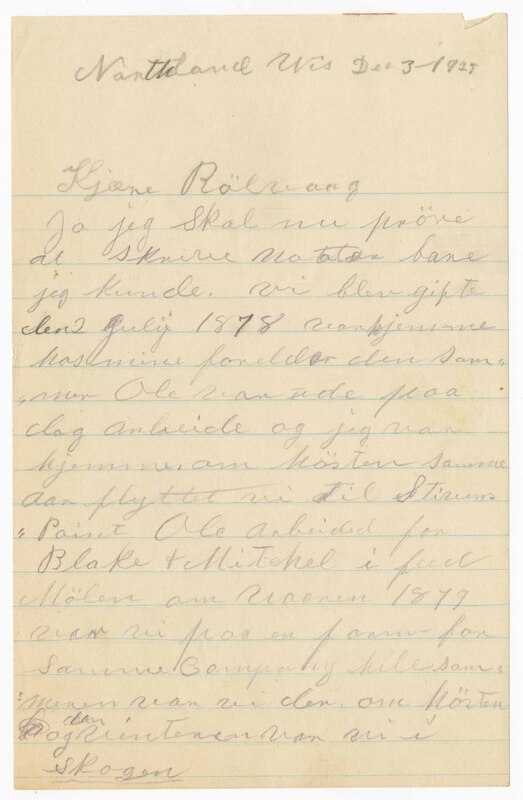 Northland Wis Dec 3-1925
Kjære Rölvaag
Ja jeg skal nu pröve
at skrive notater bare
jeg kunde. vi blev gifte
den 2 July 1878 var hjemme
hos mine forælder den som-
"mer Ole var ude paa
dag arbeide og jeg var
hjemme. om hösten samme
aar flyttet vi til Stivens
"Point, Ole arbeided for
Blake & Mitchel i feed
Mölen om vaaren 1879
var vi paa en farm for
samme Company hele som-
"meren var vi der. om hösten
og vinteren var vi i
skogen